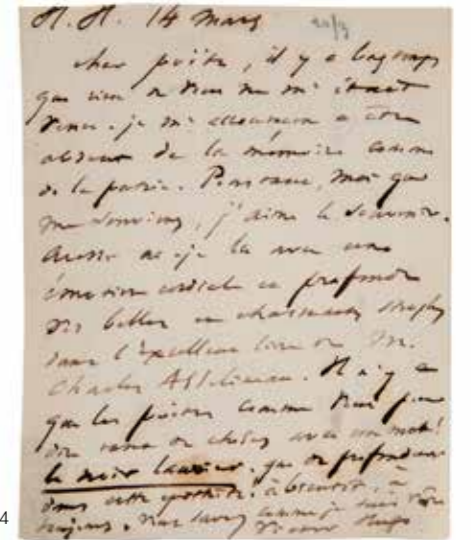 H. H. 14 mars
cher poëte, il y a longtemps
que rien de vous ne m'était
venu. je m'accoutume à être
absent de la mémoire comme
de la patrie. Pourtant, moi qui
me souviens, j'aime le souvenir.
Aussi ai-je lu avec une
émotion cordiale et profonde
vos belles et charmantes strophes
dans l'excellent livre de M.
Charles Asselineau. Il n'y a
que les poëtes comme vous pour
dire tant de choses avec un mot!
le noir laurier. que de profondeur
dans cette épithète! à bientôt, à
toujours. vous savez comme je suis vôtre
Victor Hugo
4